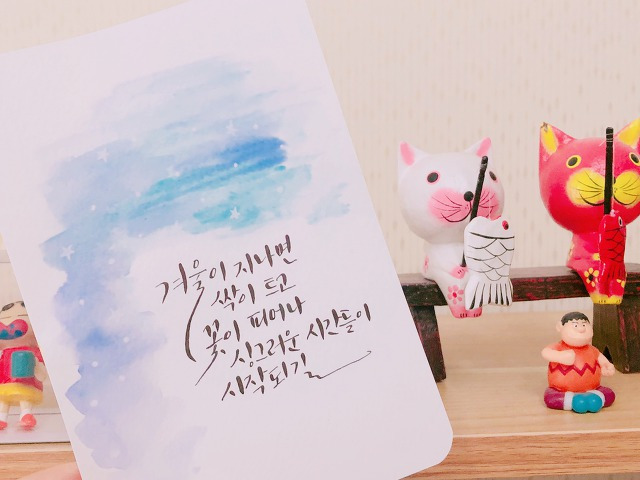 겨울이 지나면
싹이 트고
꽃이 피어나
싱그러운 시간들이
시작되길